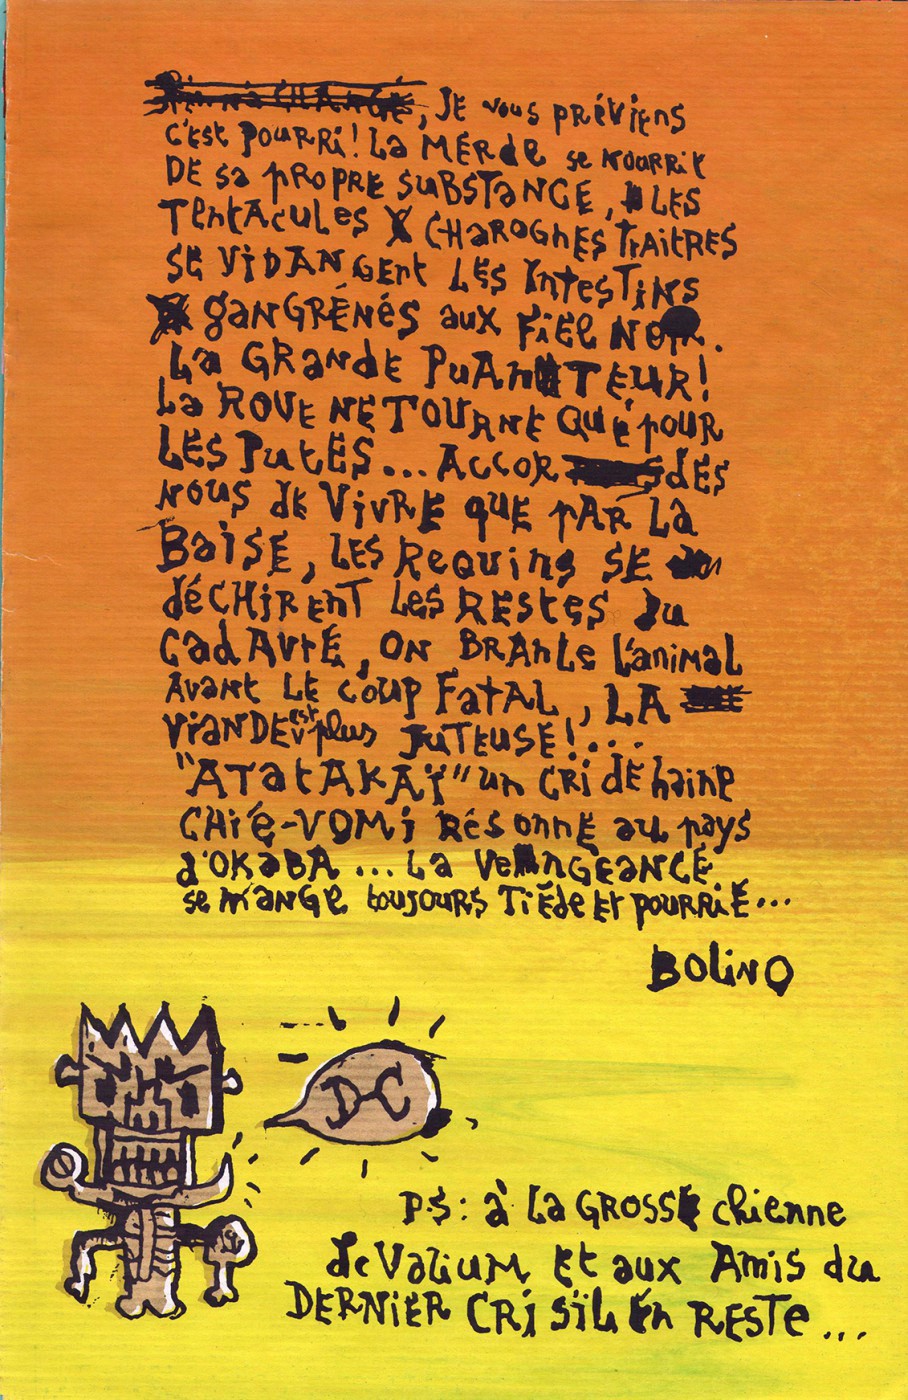 CHANGE, JE vous préviens
c'est pourri! La MERde se nourrit
DE sa propre SUBSTANCE, LES
Tentacules X CHAROGNES TRAITRES
SE VIDANGent LES IntesTins
ganGRÉNÉS aux FIEL NOir.
La GRande PuAnTEUR!
La ROUE NE TOURNE QUE pour
LES PUTES... Accor dés
nous de VIVRE que PAR La
BaISE, LES Requins SE
déCHIRent LES RESTES Du
CadAVRE, ON BRAnLe L'animal
Avant LE COUP FATAL, LA
VIANDE est plus JUTEUSE!...
"ATATAKAÏ" un CRI DE haine
CHIÉ-VOMI RÉSONNE au pays
d'OKABA... La VEnNGEANCE
se mANGE toujours TIÈde ET pourriE...
BOLINO
DC
P.S: à La GROSSE chienne
de Valium ET aux Amis du
DERNIER CRI S'IL én RESTE...